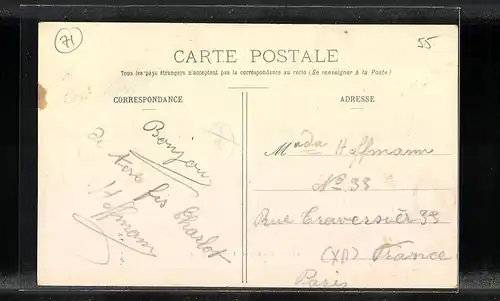 71
55
CARTE POSTALE
Tous les pays étrangers n'acceptent pas la correspondance au recto (Se renseigner à la Poste)
CORRESPONDANCE
Bonjour
de tere fis Charlot
Hoffmann
ADRESSE
Mada Hoffmann
No 33
Rue Traversièr 33
(XII) France
Paris